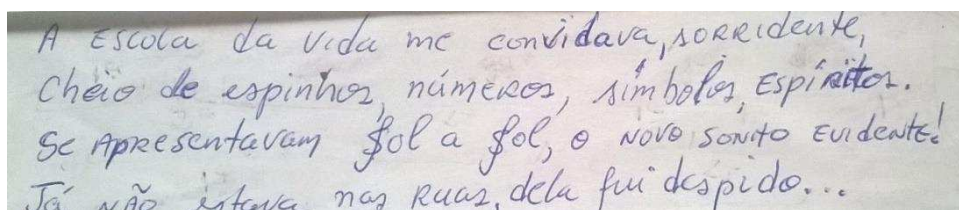 A Escola da vida me convidava, sorridente,
Cheio de espinhos, números, símbolos, Espíritos.
Se Apresentavam Sol a Sol, o novo sonito Evidente!
Já não estava nas Ruas, dela fui despido...